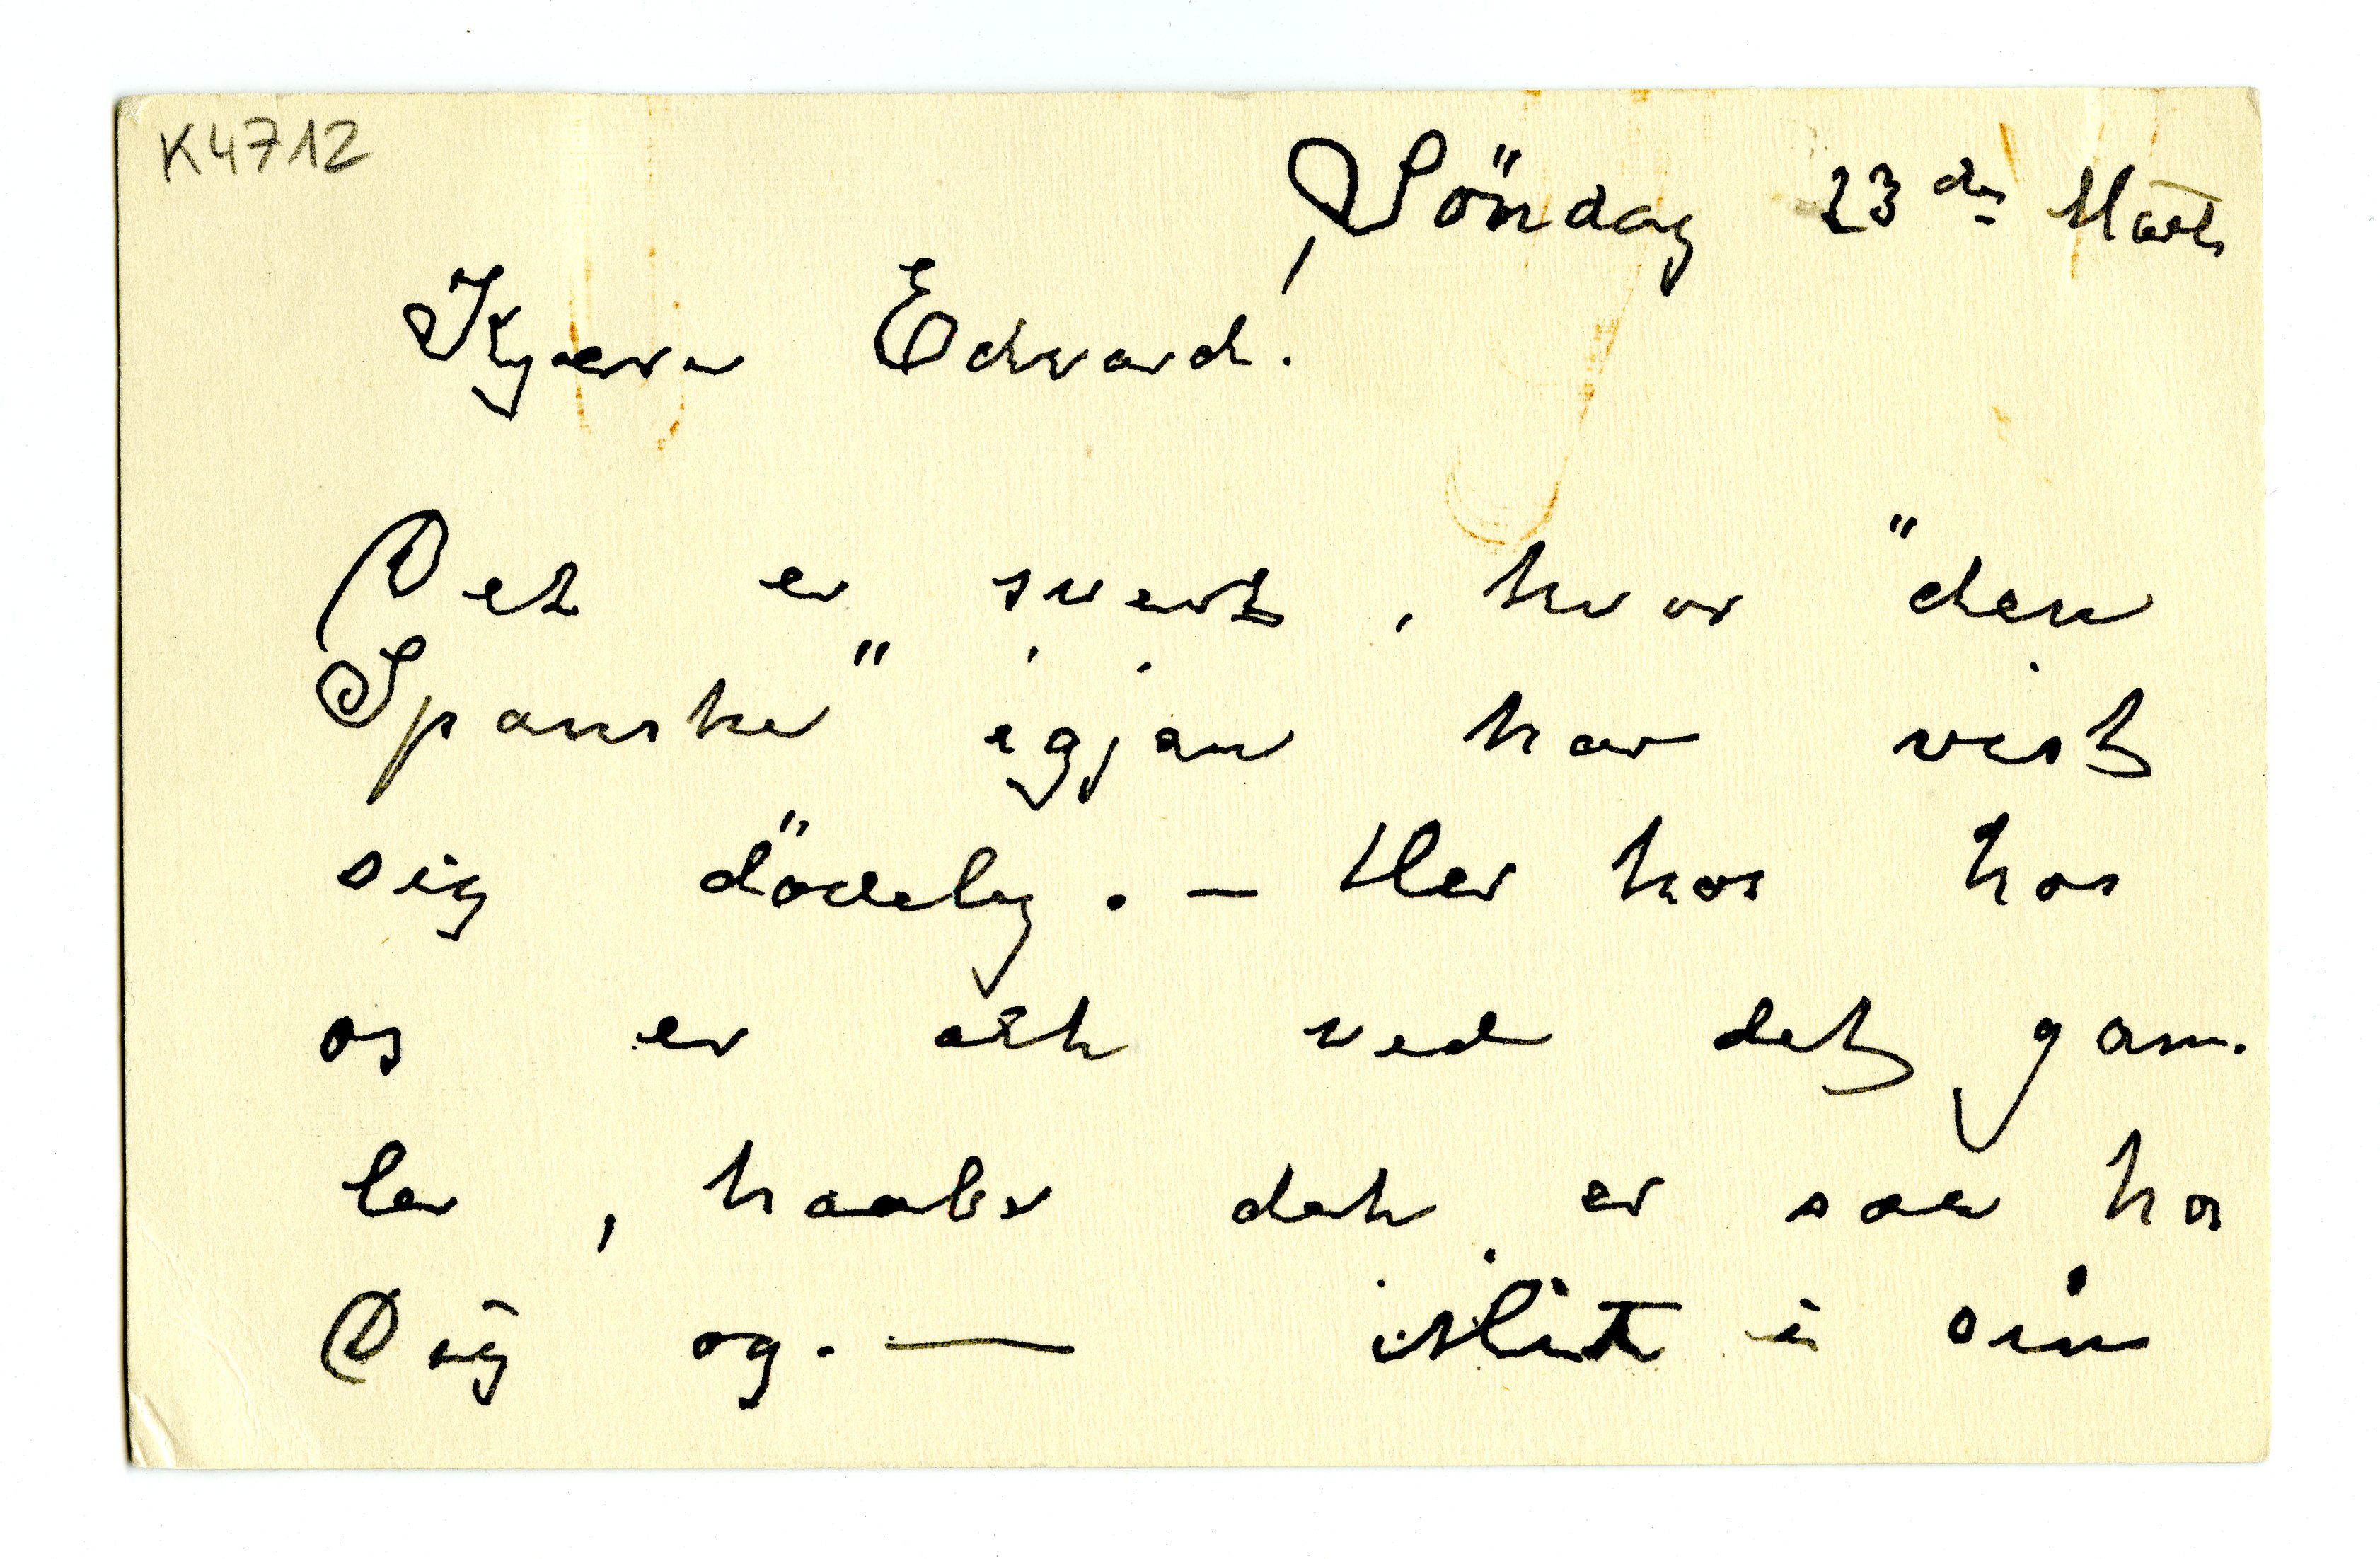 K4712
Söndag 23de Marts
Kjære Edvard!
Det er svert, hvor "den
Spanske" igjen har vist
sig dödelig. – Her hos hos
os er alt ved det gam-
le, haaber det er saa hos
Dig og. — Midt i sin